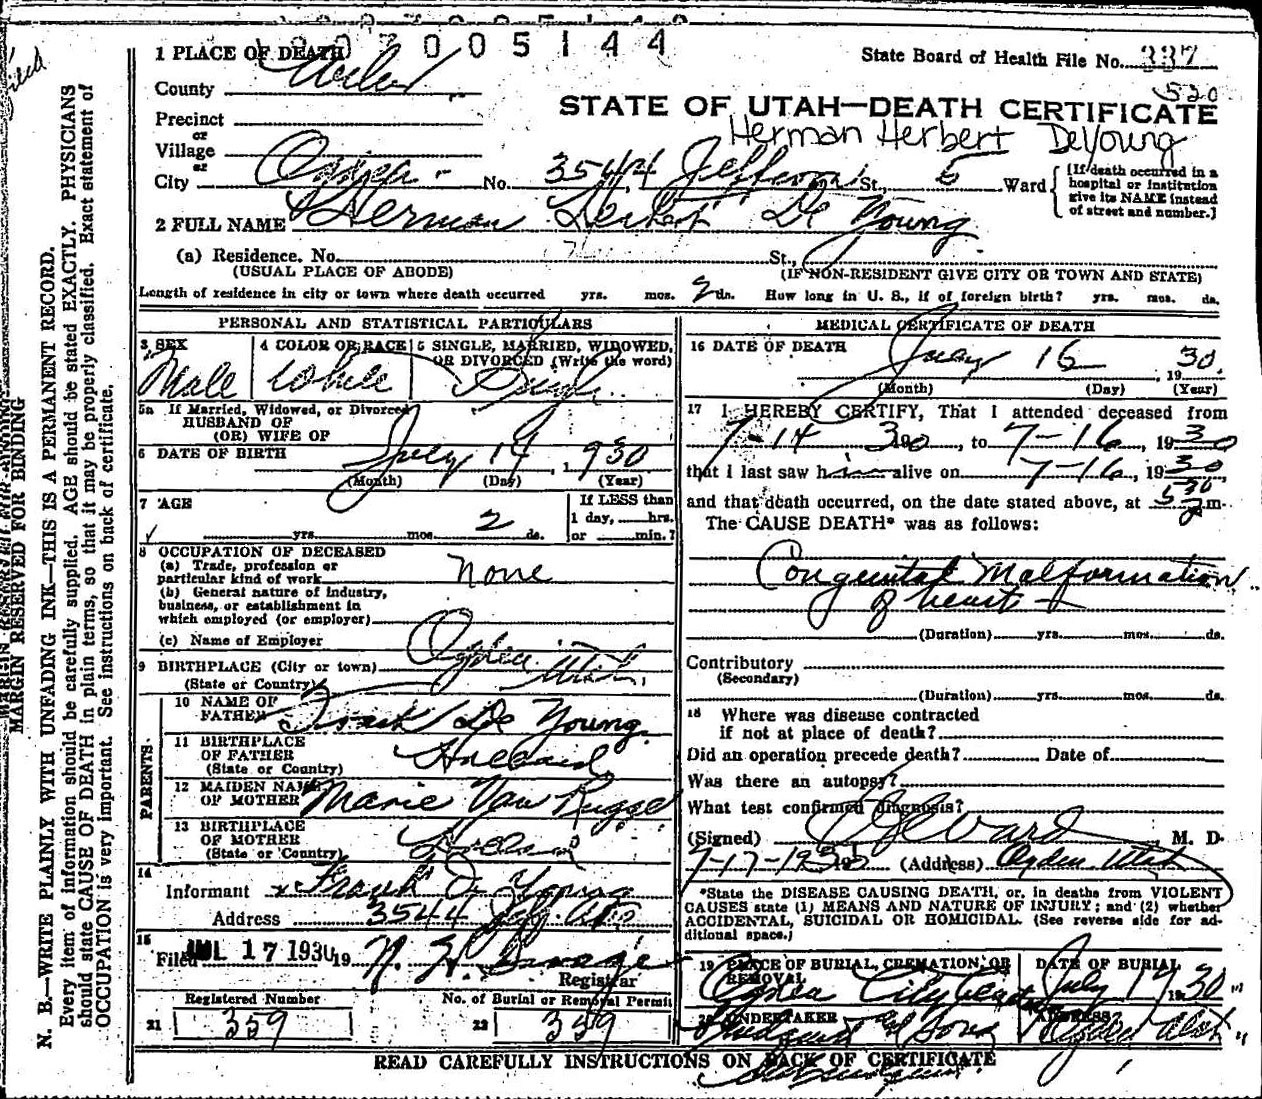 3 0 7 0 0 5 1 4 4
1 PLACE OF DEATH
State Board of Health File No. 337
530
County Weber
STATE OF UTAH—DEATH CERTIFICATE
Precinct
or
Village
Herman Herbert DeYoung
or
City Ogden No. 3544 Jefferson St., 5 Ward
[If death occurred in a
hospital or institution
give its NAME instead
of street and number.]
2 FULL NAME Herman Herbert De Young
(a) Residence. No. St.,
(USUAL PLACE OF ABODE) (IF NON-RESIDENT GIVE CITY OR TOWN AND STATE)
Length of residence in city or town where death occurred yrs. mos. 2 ds. How long in U. S., if of foreign birth? yrs. mos. ds.
PERSONAL AND STATISTICAL PARTICULARS
3 SEX
Male
4 COLOR OR RACE
White
5 SINGLE, MARRIED, WIDOWED,
OR DIVORCED (Write the word)
Single
5a If Married, Widowed, or Divorced
HUSBAND OF
(OR) WIFE OF
6 DATE OF BIRTH July 14, 1930
(Month) (Day) (Year)
7 AGE
yrs. mos. 2 ds.
If LESS than
1 day, hrs.
or min.?
8 OCCUPATION OF DECEASED
(a) Trade, profession or
particular kind of work None
(b) General nature of industry,
business, or establishment in
which employed (or employer)
(c) Name of Employer
9 BIRTHPLACE (City or town) Ogden
(State or Country) Utah.
PARENTS
10 NAME OF
FATHER Frank De Young
11 BIRTHPLACE
OF FATHER Holland
(State or Country)
12 MAIDEN NAME
OF MOTHER Marie Van
13 BIRTHPLACE
OF MOTHER Holland
(State or Country)
14
Informant x Frank D Young
Address 3544 Jeff. Ave
15
Filed JUL 17 1930 19
Registrar
Registered Number No. of Burial or Removal Permit
21 359 22 359
MEDICAL CERTIFICATE OF DEATH
16 DATE OF DEATH
July 16, 1930.
(Month) (Day) (Year)
17 I HEREBY CERTIFY, That I attended deceased from
7-14 30, to 7-16, 1930
that I last saw him alive on 7-16, 1930
and that death occurred, on the date stated above, at 5 30 m.
The CAUSE DEATH* was as follows:
Congenital Malformation
of heart
(Duration) yrs. mos. ds.
Contributory
(Secondary)
(Duration) yrs. mos. ds.
18 Where was disease contracted
if not at place of death?
Did an operation precede death? Date of
Was there an autopsy?
What test confirmed diagnosis?
(Signed) Ward M. D.
7-17-193 (Address) Ogden Utah
*State the DISEASE CAUSING DEATH, or, in deaths from VIOLENT
CAUSES state (1) MEANS AND NATURE OF INJURY; and (2) whether
ACCIDENTAL, SUICIDAL OR HOMICIDAL. (See reverse side for ad-
ditional space.)
19 PLACE OF BURIAL, CREMATION, OR
REMOVAL
Ogden City
DATE OF BURIAL
July 17 1930
20 UNDERTAKER
and Sons
ADDRESS
Ogden Utah
READ CAREFULLY INSTRUCTIONS ON BACK OF CERTIFICATE
MARGIN RESERVED FOR BINDING
N. B.—WRITE PLAINLY WITH UNFADING INK—THIS IS A PERMANENT RECORD.
Every item of information should be carefully supplied. AGE should be stated EXACTLY. PHYSICIANS
should state CAUSE OF DEATH in plain terms, so that it may be properly classified. Exact statement of
OCCUPATION is very important. See instructions on back of certificate.